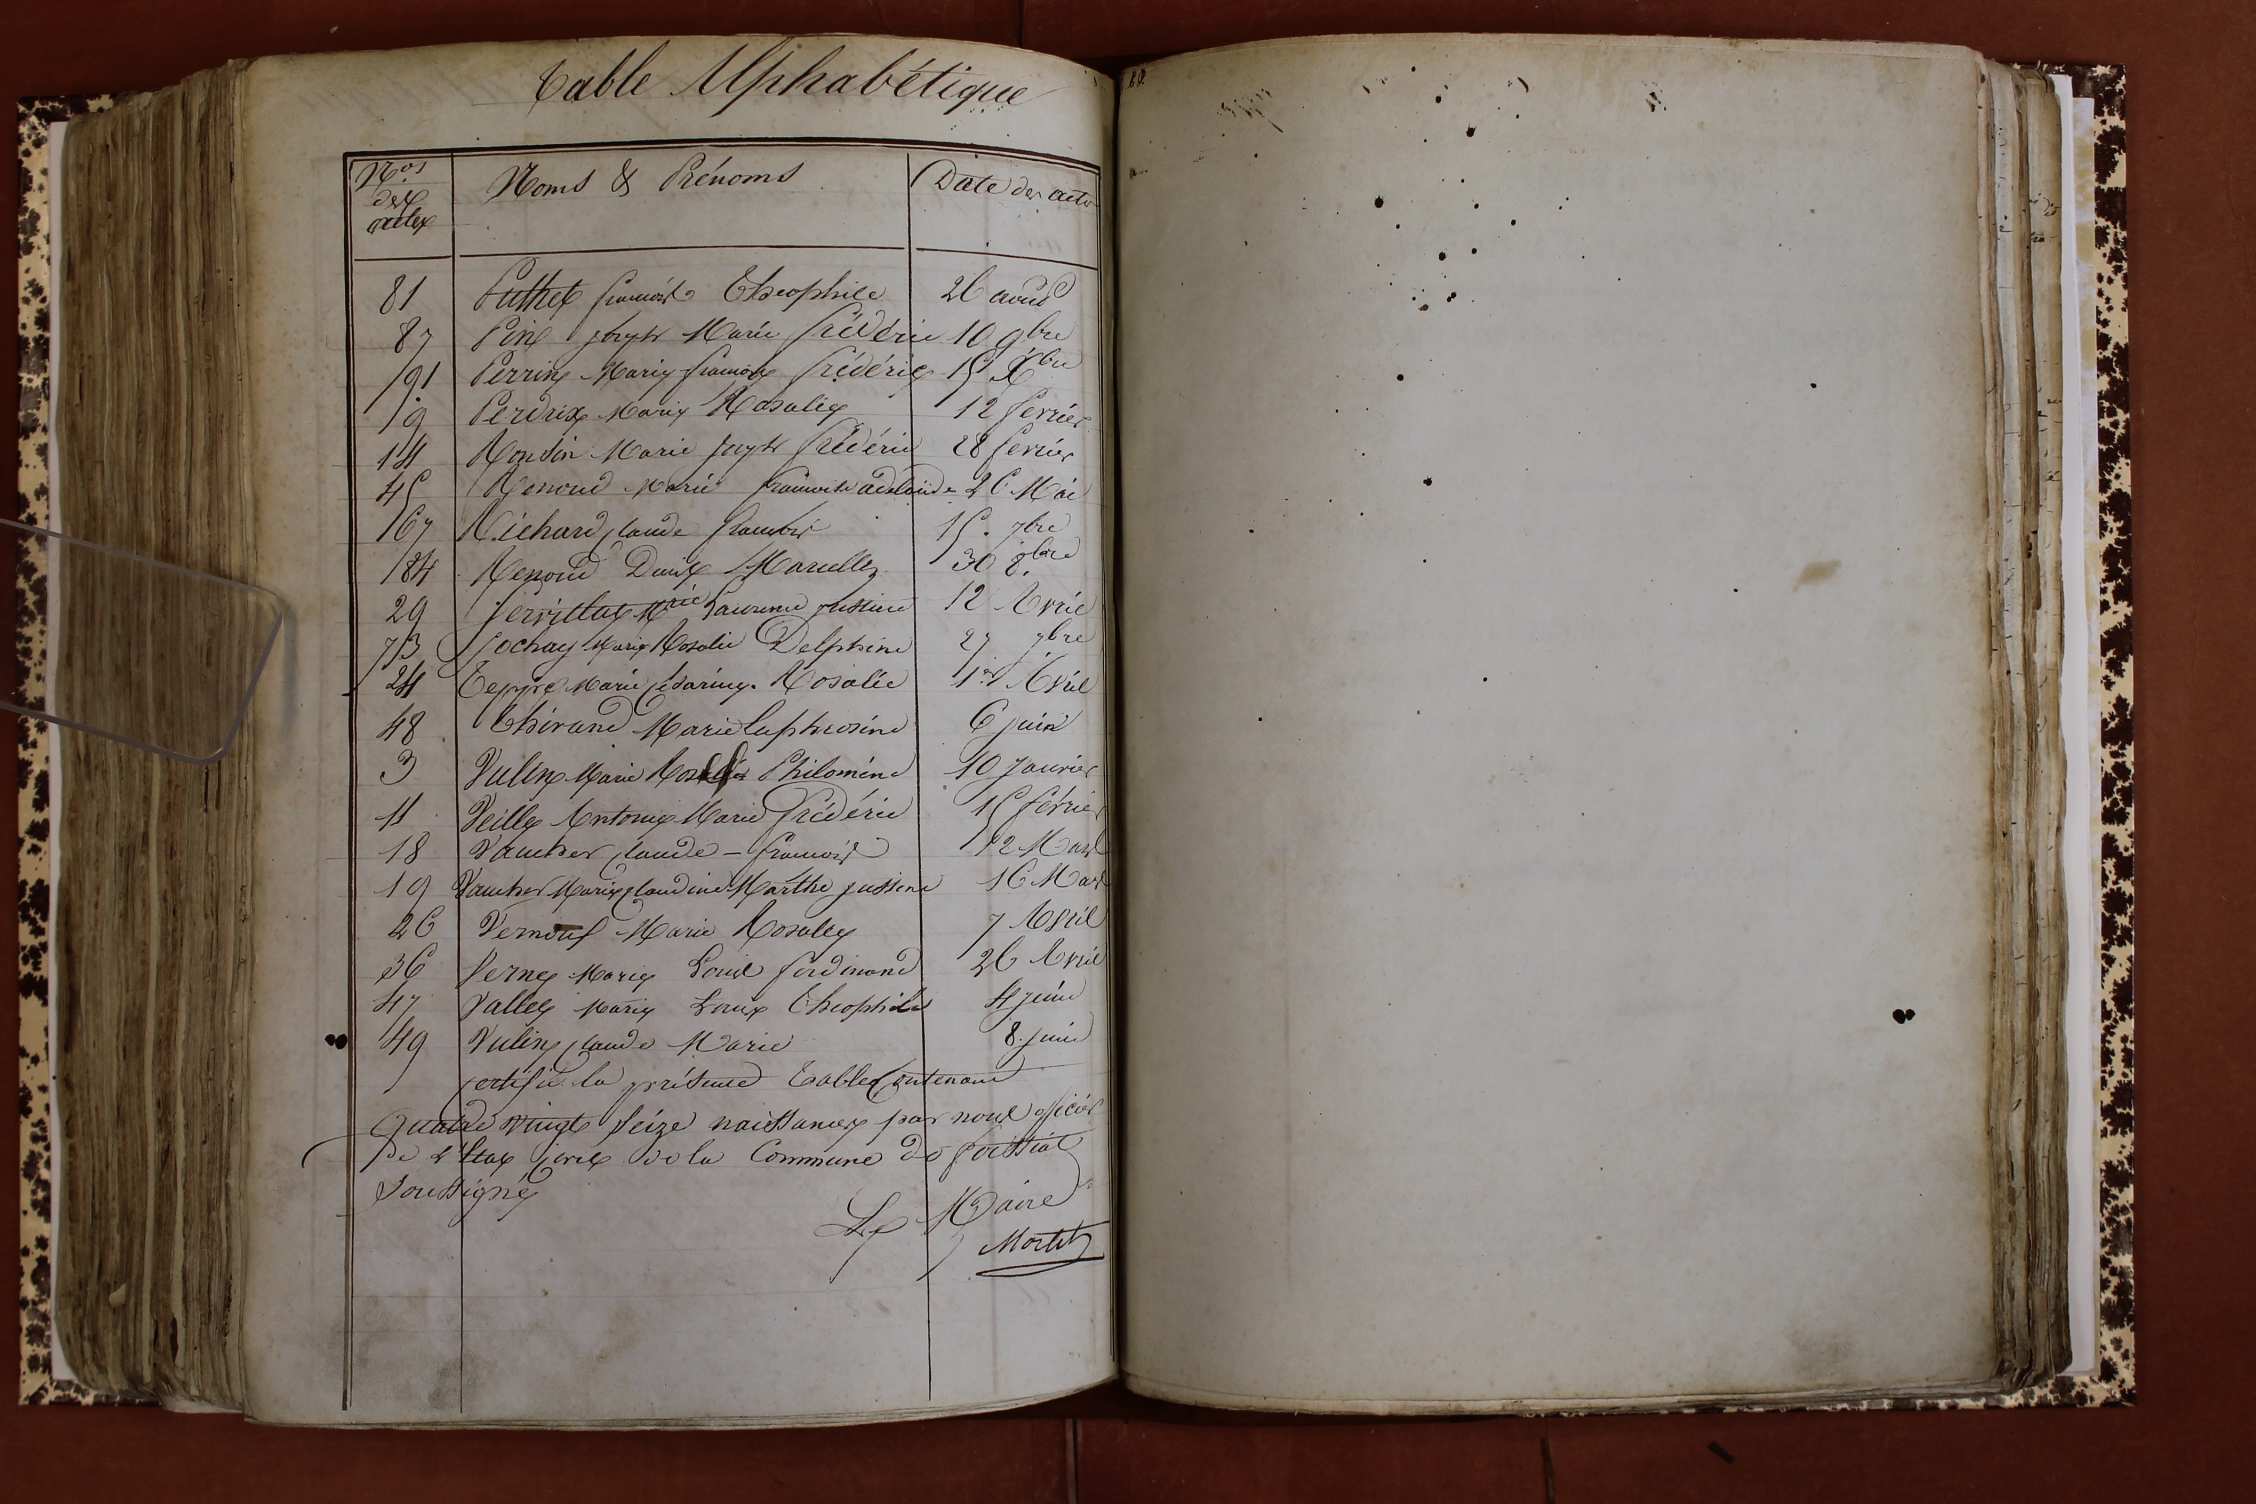 Table Alphabétique
Nos des actes Noms & Prénoms Date des actes
81 Puthet françois Théophile 26 août
87 Pin joseph Marie frédéric 10 9bre
91 Perrin Marie françois frédéric 15 Xbre
9 Perdrix Marie Rosalie 12 fevrier
14 Rondin Marie joseph frédéric 28 fevrier
45 Renoud Marie françoise adelaïde 26 Mai
67 Richard claude françois 15 7bre
84 Renoud Denis Marcelle 30 8bre
29 Servillat Mrie Laurence justine 12 Avril
73 Sochay Marie Rosalie Delphine 27 7bre
24 Marie Césarine Rosalie 1er Avril
48 Thivand Marie Euphrosine 6 juin
3 Vulin Marie Philomène 10 Janvier
11 Veille Antoine Marie frédéric 15 février
18 Vaucher claude - françois 12 Mars
19 Vaucher Marie claudine Marthe justine 16 Mars
26 Vernouf Marie Rosalie 7 Avril
36 Verne Marie Louis ferdinand 26 Avril
47 Vallet Marie Louis Théophile 4 juin
49 Vulin claude Marie 8 juin
certifié la présente Table Contenant
quatre vingt seize naissances par nous officier
de l'Etat civil de la Commune de foissiat
Soussigné
Le Maire